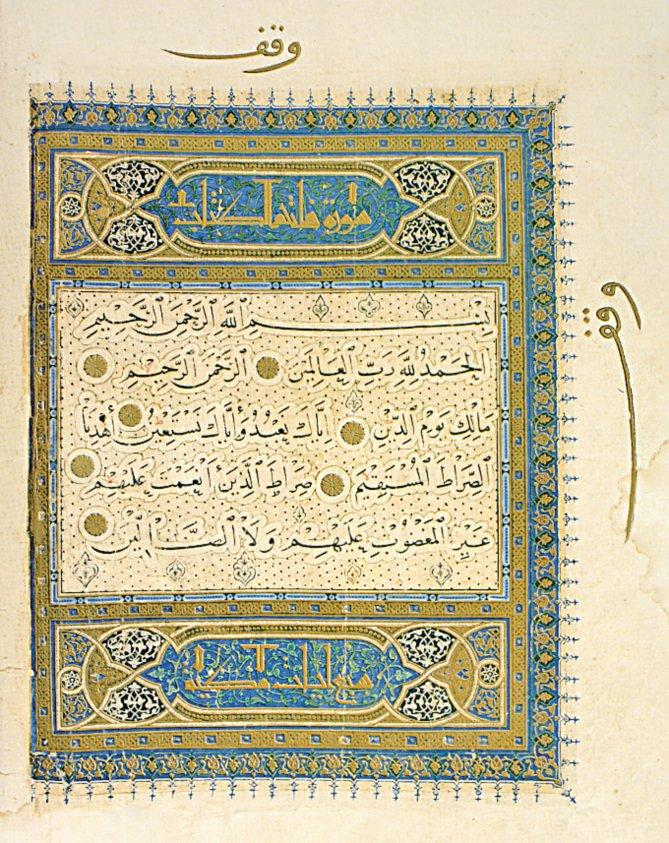 وقف
سورة فاتحة الكتاب
بِسْمِ ٱللَّهِ ٱلرَّحْمَٰنِ ٱلرَّحِيمِ
ٱلْحَمْدُ لِلَّهِ رَبِّ ٱلْعَالَمِينَ ٱلرَّحْمَٰنِ ٱلرَّحِيمِ
مَالِكِ يَوْمِ ٱلدِّينِ إِيَّاكَ نَعْبُدُ وَإِيَّاكَ نَسْتَعِينُ ٱهْدِنَا
ٱلصِّرَاطَ ٱلْمُسْتَقِيمَ صِرَاطَ ٱلَّذِينَ أَنْعَمْتَ عَلَيْهِمْ
غَيْرِ ٱلْمَغْضُوبِ عَلَيْهِمْ وَلَا ٱلضَّالِّينَ
سبع ايات مكية
وقف